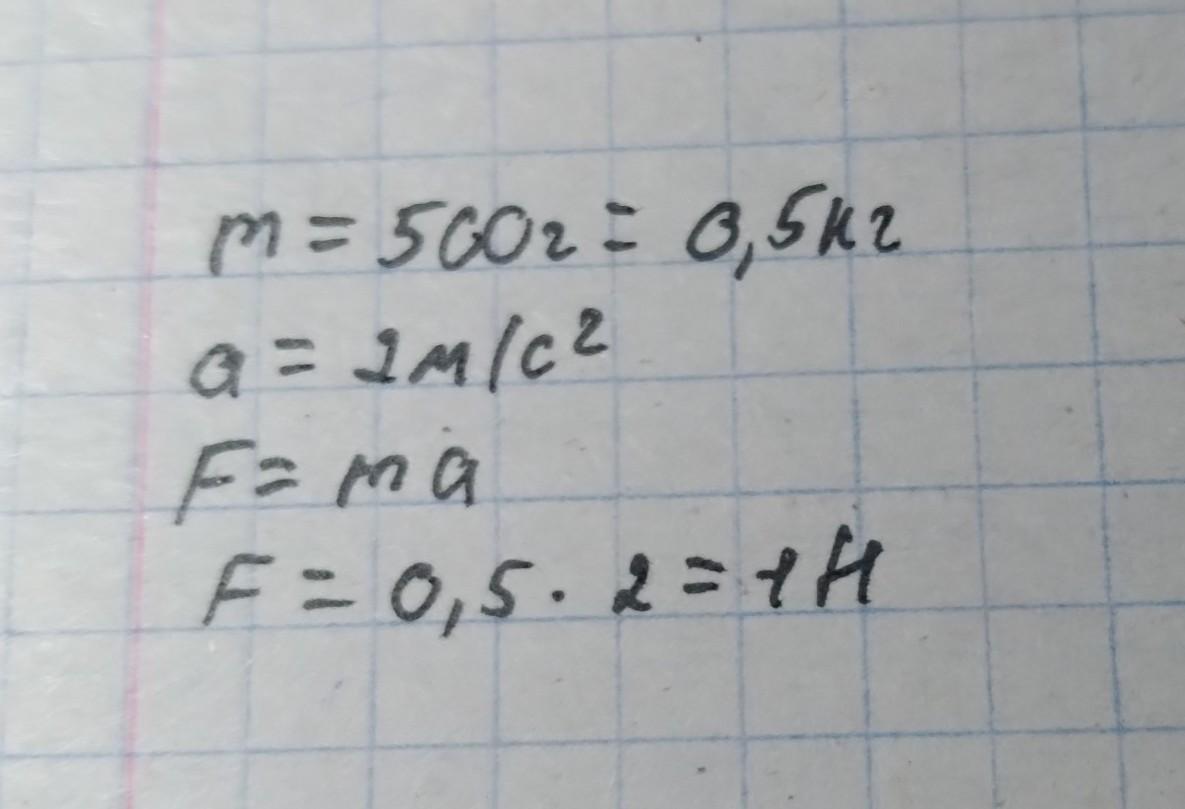 m = 500г = 0,5кг
a = 2м/с²
F = ma
F = 0,5 · 2 = 1Н